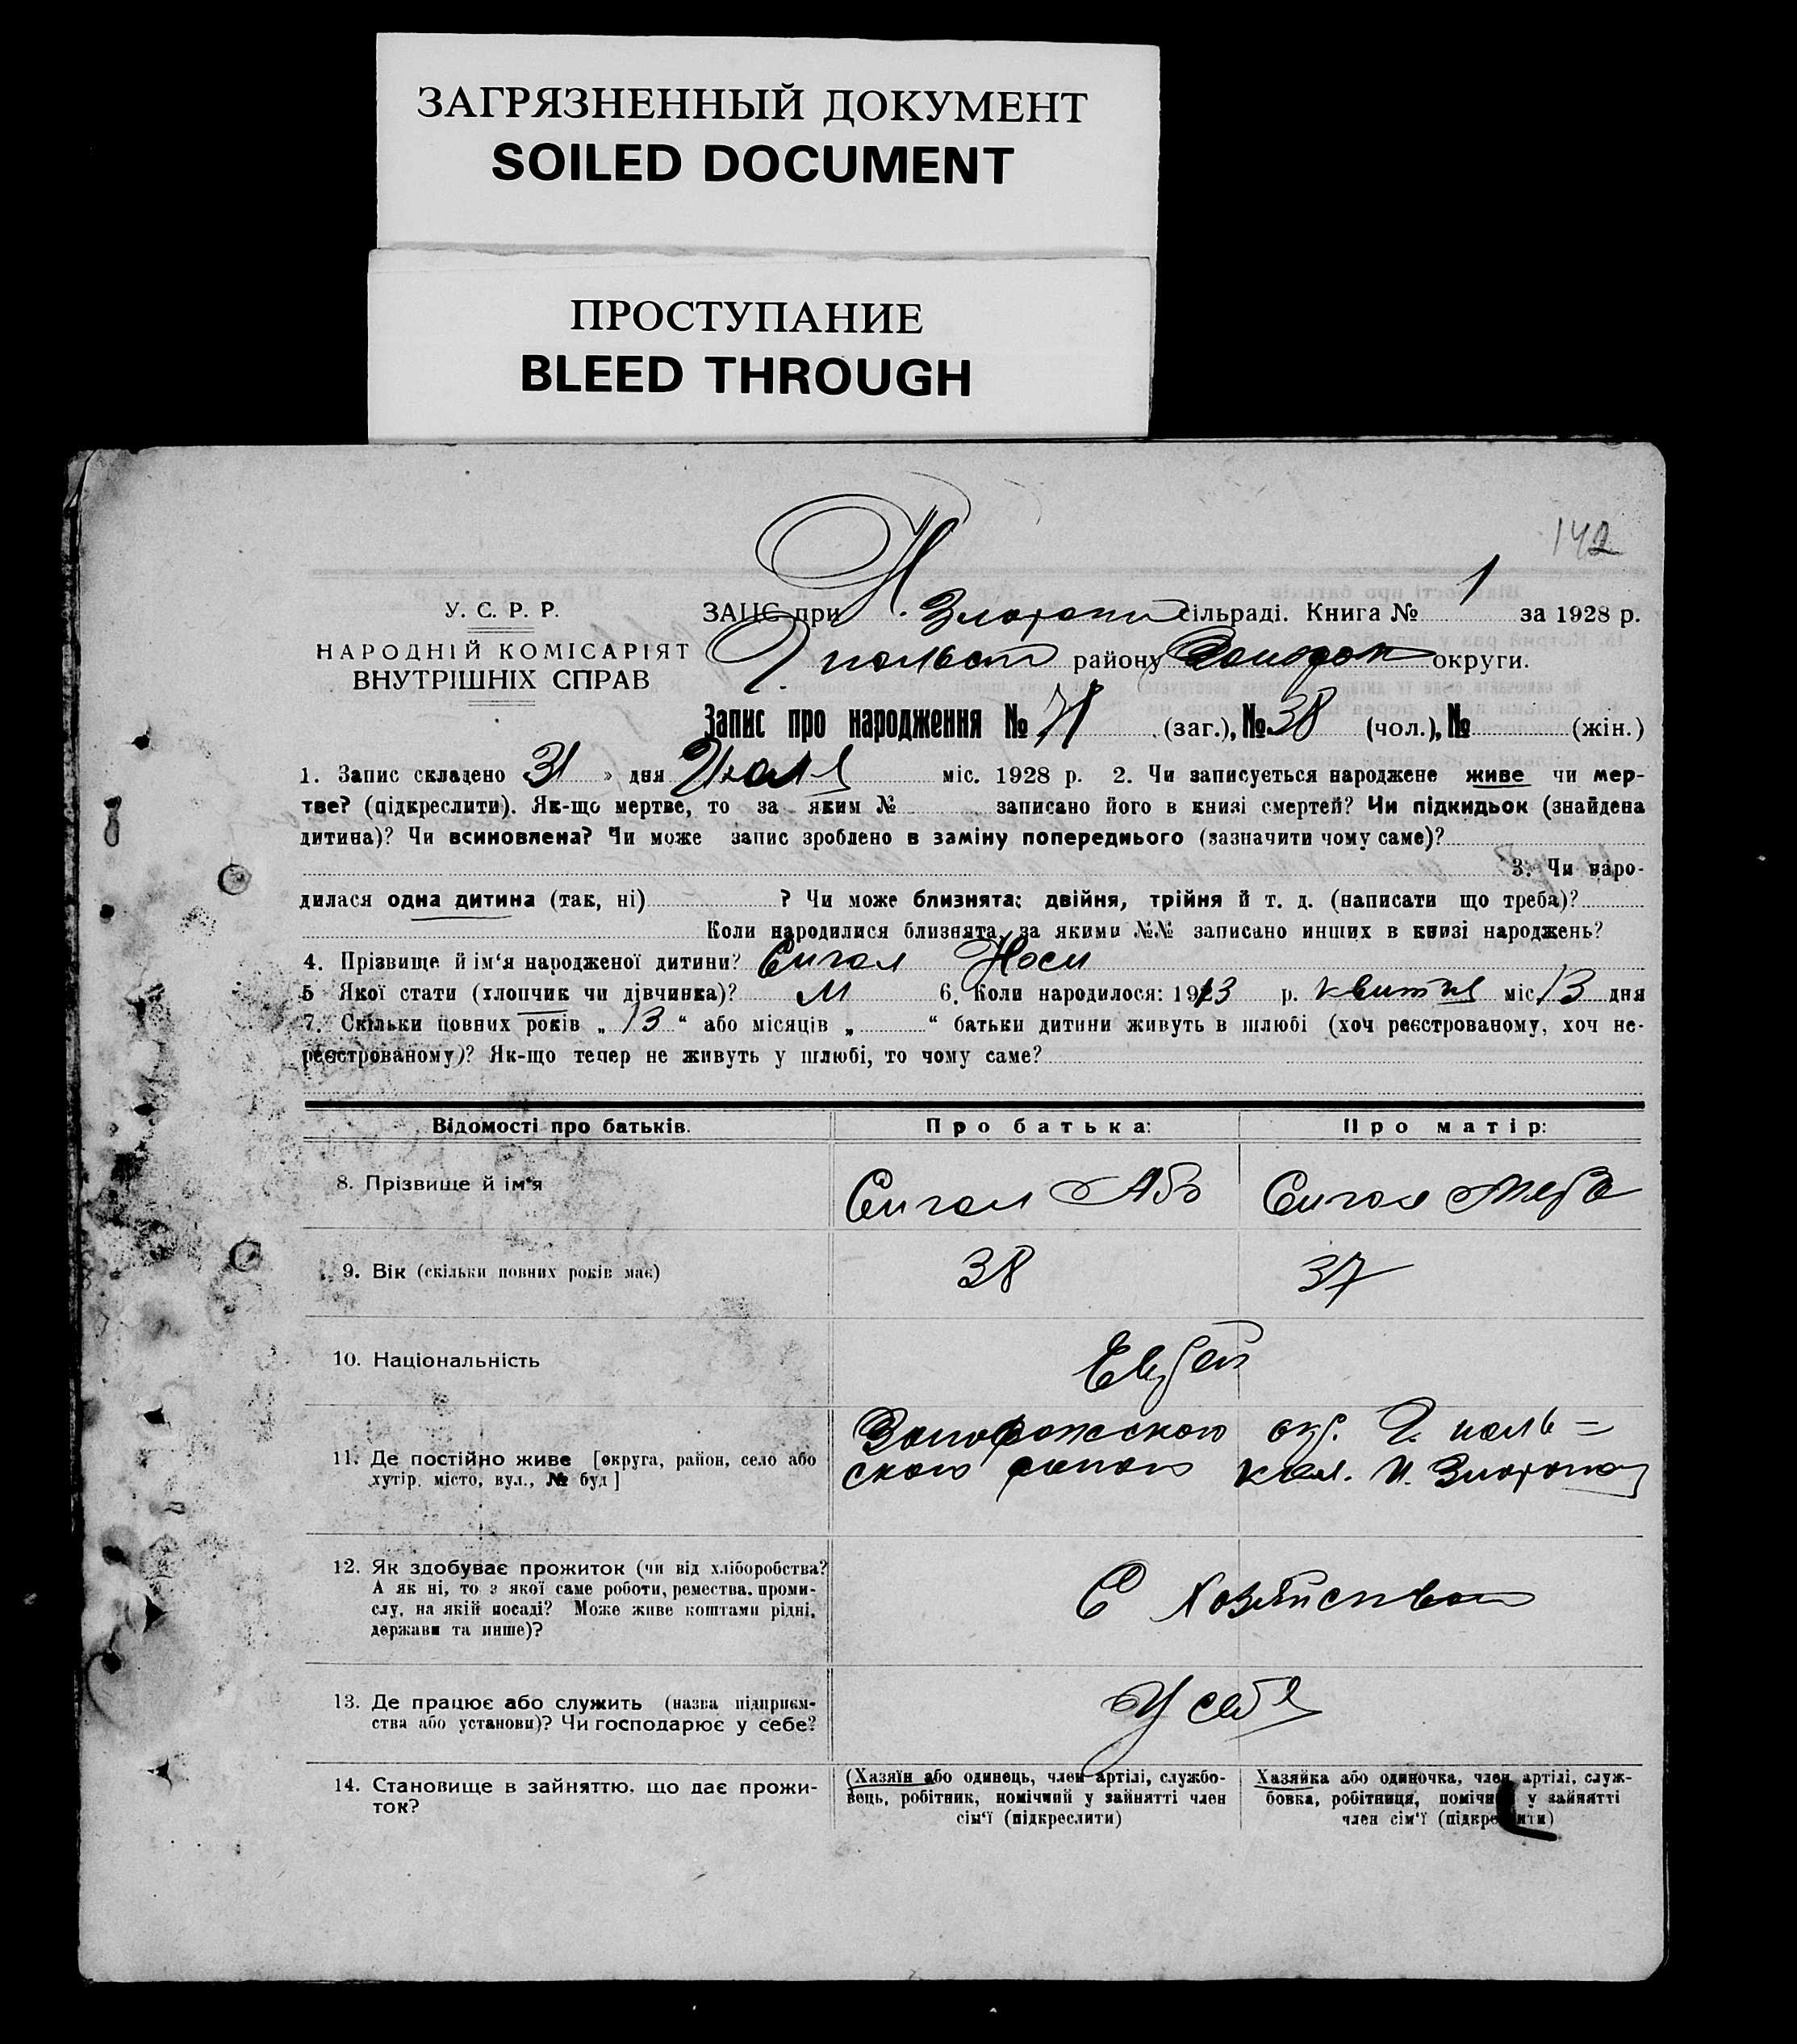 ЗАГРЯЗНЕННЫЙ ДОКУМЕНТ
SOILED DOCUMENT
ПРОСТУПАНИЕ
BLEED THROUGH
142
У. С. Р. Р.
НАРОДНІЙ КОМІСАРІЯТ
ВНУТРІШНІХ СПРАВ
ЗАЦС при Н. сільраді. Книга № 1 за 1928 р.
району округи.
Запис про народження № 71 (заг.), № 38 (чол.), № (жін.)
1. Запис складено 31 » дня міс. 1928 р. 2. Чи записується народжене живе чи мер-
тве? (підкреслити). Як-що мертве, то за яким № записано його в книзі смертей? Чи підкидьок (знайдена
дитина)? Чи всиновлена? Чи може запис зроблено в заміну попереднього (зазначити чому саме)?
3. Чи наро-
дилася одна дитина (так, ні) ? Чи може близнята: двійня, трійня й т. д. (написати що треба)?
Коли народилися близнята, за якими №№ записано инших в книзі народжень?
4. Прізвище й ім‘я народженої дитини? Сигал Йоси
5 Якої стати (хлопчик чи дівчинка)? М 6. Коли народилося: 1913 р. квитня міс. 13 дня
7. Скільки повних років „ 13 “ або місяців „ “ батьки дитини живуть в шлюбі (хоч реєстрованому, хоч не-
реєстрованому)? Як-що тепер не живуть у шлюбі, то чому саме?
Відомості про батьків. Про батька: Про матір:
8. Прізвище й ім‘я Сигал Сигал
9. Вік (скільки повних років має) 38 37
10. Національність Еврей
11. Де постійно живе [округа, район, село або Запорожского окр.
хутір, місто, вул., № буд ] ского кол. Н.
12. Як здобуває прожиток (чи від хліборобства?
А як ні, то з якої саме роботи, ремества, проми-
слу, на якій посаді? Може живе коштами рідні, С Хозяйства
держави та инше)?
13. Де працює або служить (назва підприєм-
ства або установи)? Чи господарює у себе? У себя
14. Становище в зайняттю, що дає прожи-
ток?
(Хазяїн або одинець, член артілі, службо-
вець, робітник, помічний у зайнятті член
сім‘ї (підкреслити)
Хазяйка або одиночка, член артілі, служ-
бовка, робітниця, помічна у зайнятті
член сім‘ї (підкреслити)